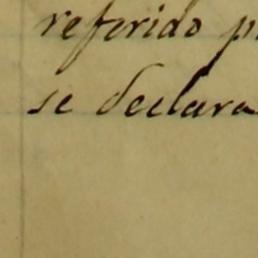 referido p
se declara